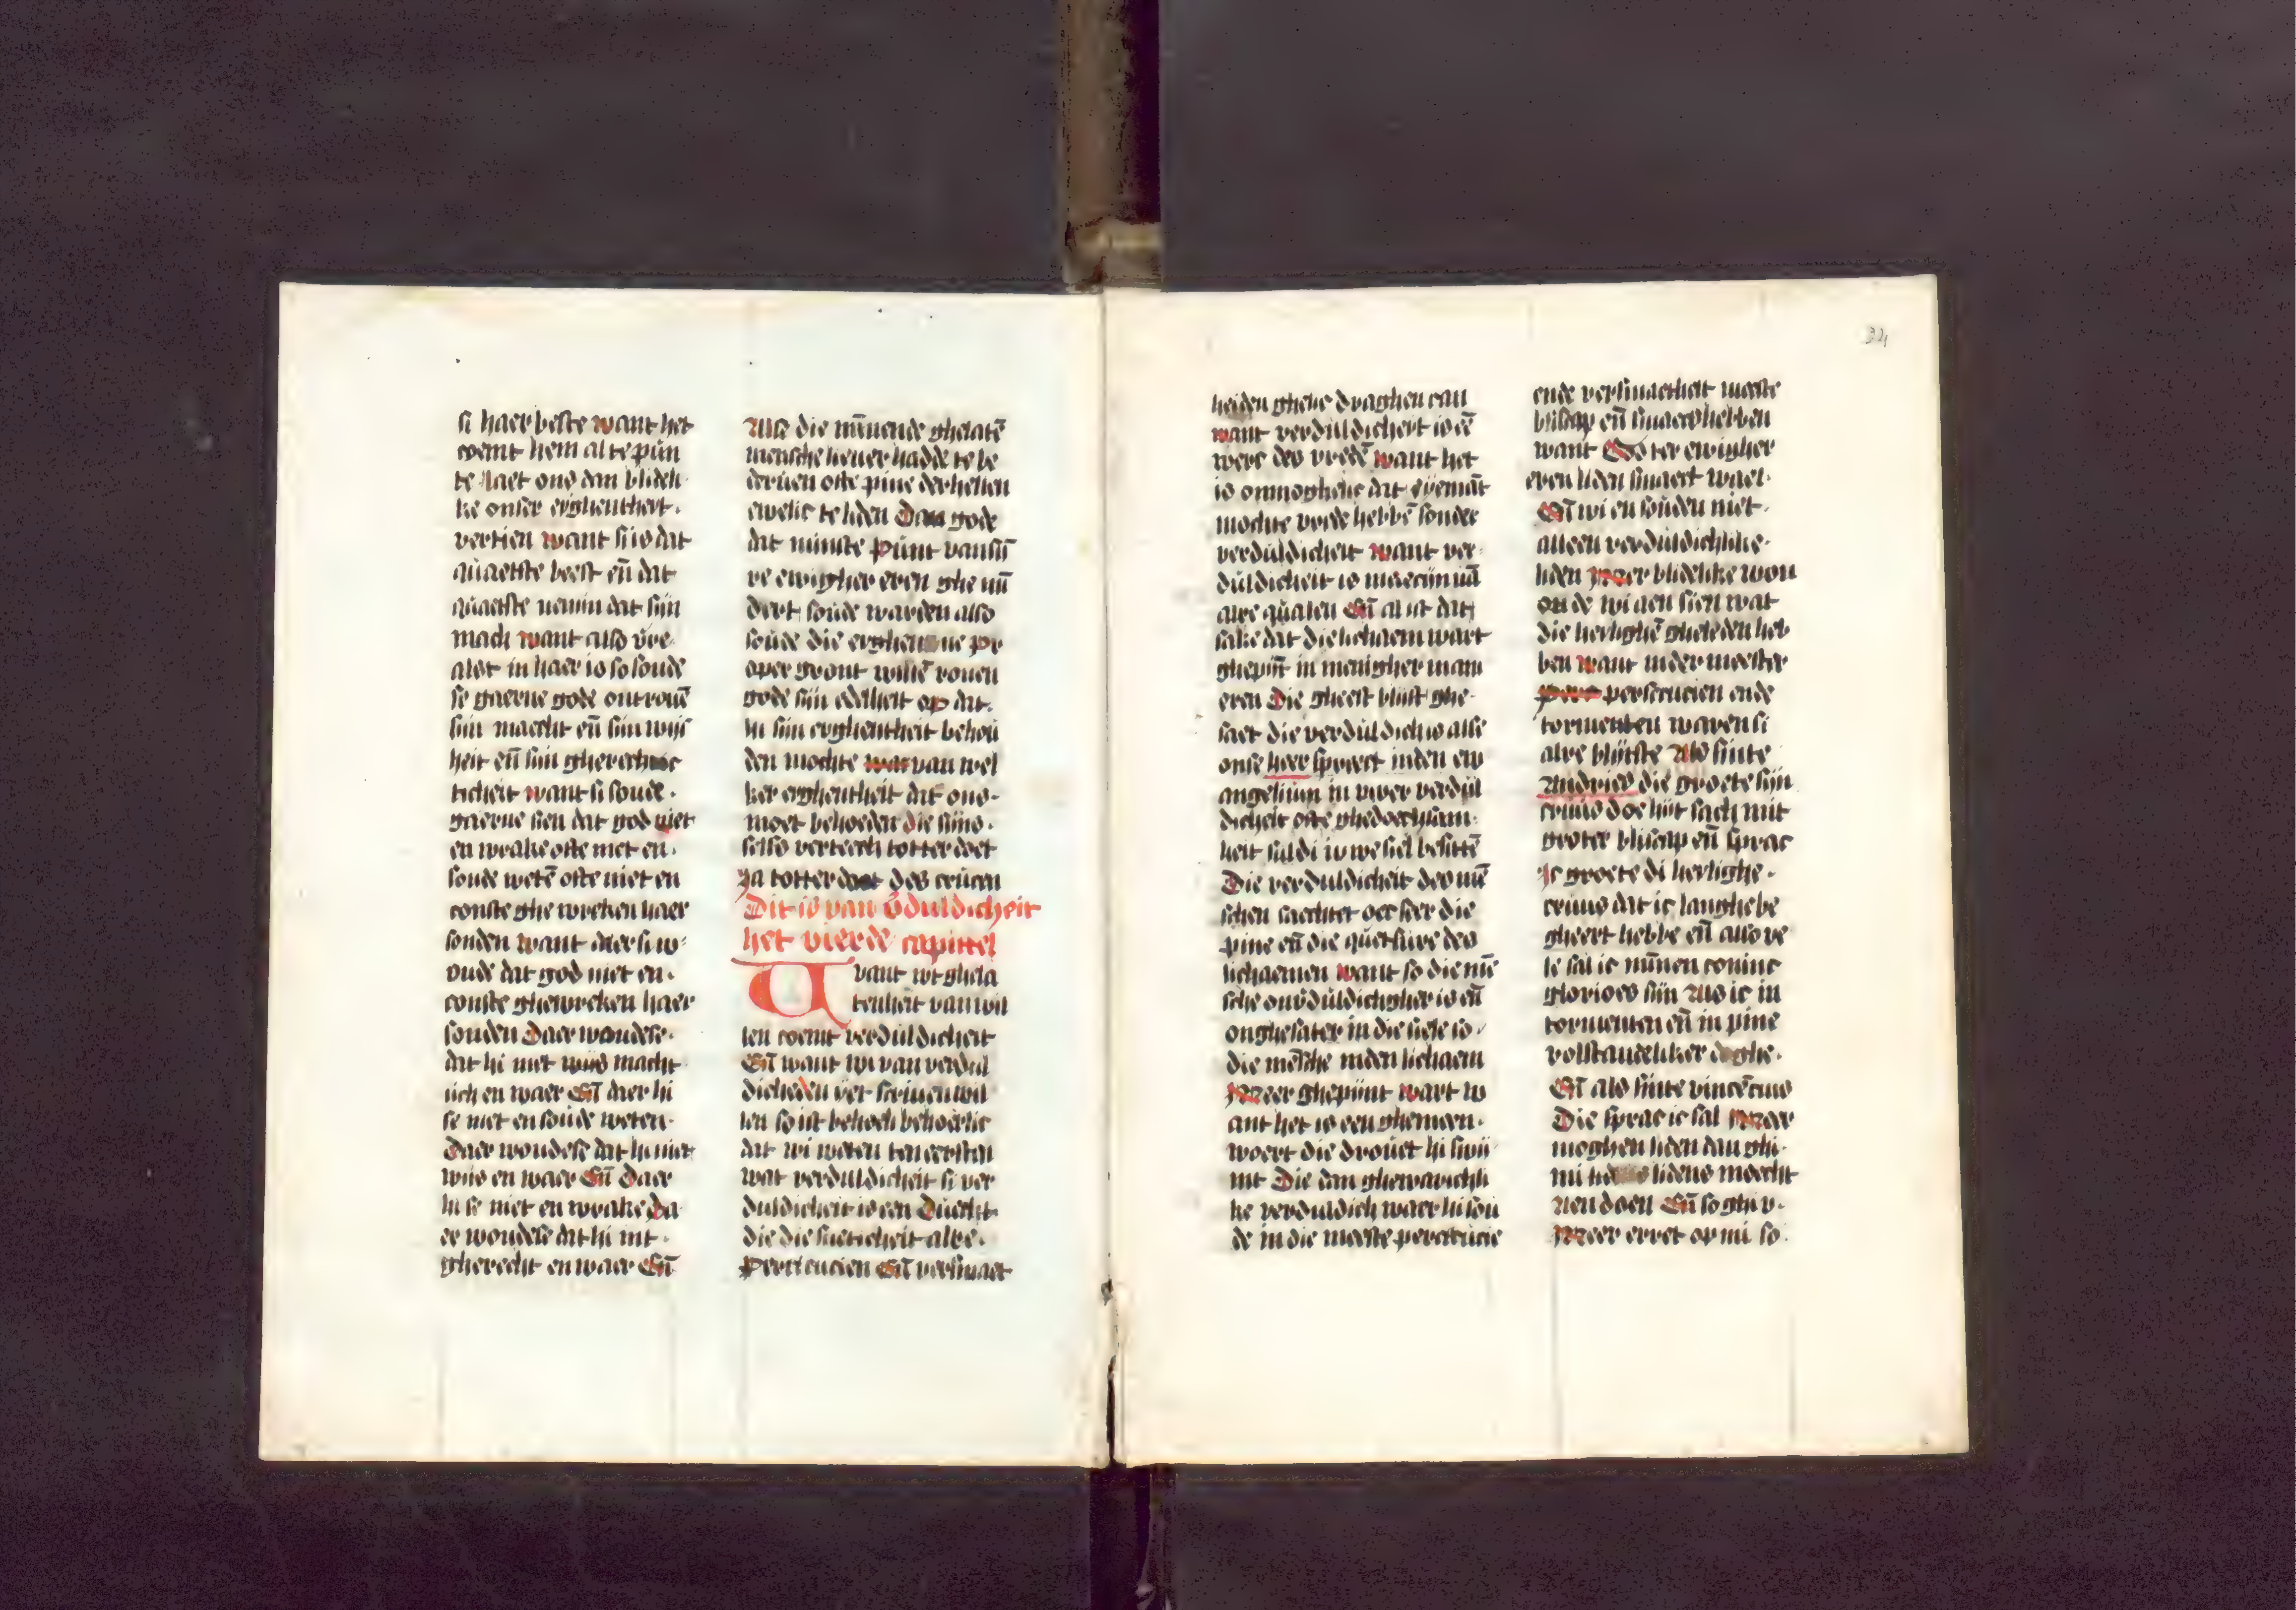 si haer beste want het
coemt hem al te pūn
te laet ons dan blideli
ke onser eyghentheit.
vertien want si is dat
quaetste beest eñ dat
quaetste uenim dat sijn
mach want also vre
alst in haer is so soude
se gaerne gode ontrouē
sijn macht eñ sijn wijs
heit eñ sijn gherech
ticheit want si soude.
gaerne sien dat god niet
en wrake ofte niet en.
soude wetē ofte niet en
conste ghewreken haer
sonden want daer si w
oude dat god niet en.
conste ghewreken haer
sonden Daer woudese.
dat hi niet wijs macht
lich en waer Eñ daer hi
se niet en soude weten.
Daer woudese dat hi niet
wijs en waer Eñ Daer
hi se niet en wrake da
er woudese dat hi nit.
gherecht en waer Eñ
Als die minnende ghelatē
mensche lieuer hadde te be
deruen ofte pine der hellen
ewelic te liden Dan gode
dat minste punt van sij
re ewigher eren ghe mī
dert soude warden also
soude die eyghen ne pr
oper gront willē rouen
gode sijn edelheit op dat.
hi sijn eyghentheit behou
den mochte van wel
ker eyghentheit dat ons.
moet behoeden die sijns.
selfs verteech totter doet
Ja totter doet des crucen
Dit is van v̄duldicheit
het vierde capittel
Want wt ghela
tenheit van wil
len coemt verduldicheit
Eñ want wi van verdul
dicheden yet scriuen wil
len so ist behoerlic
dat wi weten ten eersten
wat verduldicheit si ver
duldicheit is een Duecht
die die sueticheit alre.
Persecucien Eñ versmaet
24
heiden ghelic draghen can
want verduldicheit is eē
werc des vredē want het
is onmoghelic dat yemāt
mochte vrede hebbē sonder
verduldicheit want ver
duldicheit is medecijn uā
alre qualen Eñ al ist dat
sake dat die lichaem wart
ghepijnt in menigher mani
eren Die gheest blijft ghe.
saet die verduldich is alse
onse heer spreect inden ew
angelium in uwer verdul
dicheit ofte ghedoechsam.
heit suldi uwe siel besittē
Die verduldicheit des mē
schen saechtet oec seer die
pine eñ die quetsure des
lichaemen want so die mē
sche onv̄duldichgher is eñ
onghesater in die siele so.
die mēsche inden lichaem
Meer ghepijnt wart w
ant het is een ghemeen.
woert die drouet hi swij
nt Die dan ghewarichli
ke verduldich waer hi sou
de in die meeste persecucie
ende versmaetheit meeste
bliscap eñ smaec hebben
want Gods ter ewigher
eren liden smaect wael.
Eñ wi en souden niet.
alleen verduldichlike.
liden Meer blidelike won
on de wi aen sien wat
die heilighē gheleden heb
ben want inder meester
persecucien ende
tormenten waren si
alre blijtste Als sinte
Andries die groete sijn
cruus doe hijt sach mit
groter bliscap eñ sprac
Ic groete di heylighe.
cruus dat ic langhe be
gheert hebbe eñ also ve
le sal ic mijnen coninc
glorioes sijn Als ic in
tormenten eñ in pine
volstandeliker doghe.
Eñ als sinte vincēcius
Die sprac ic sal Meer
moghen liden dan ghi.
mi lidens moecht
aen doen Eñ so ghi v.
Meer erret op mi so.